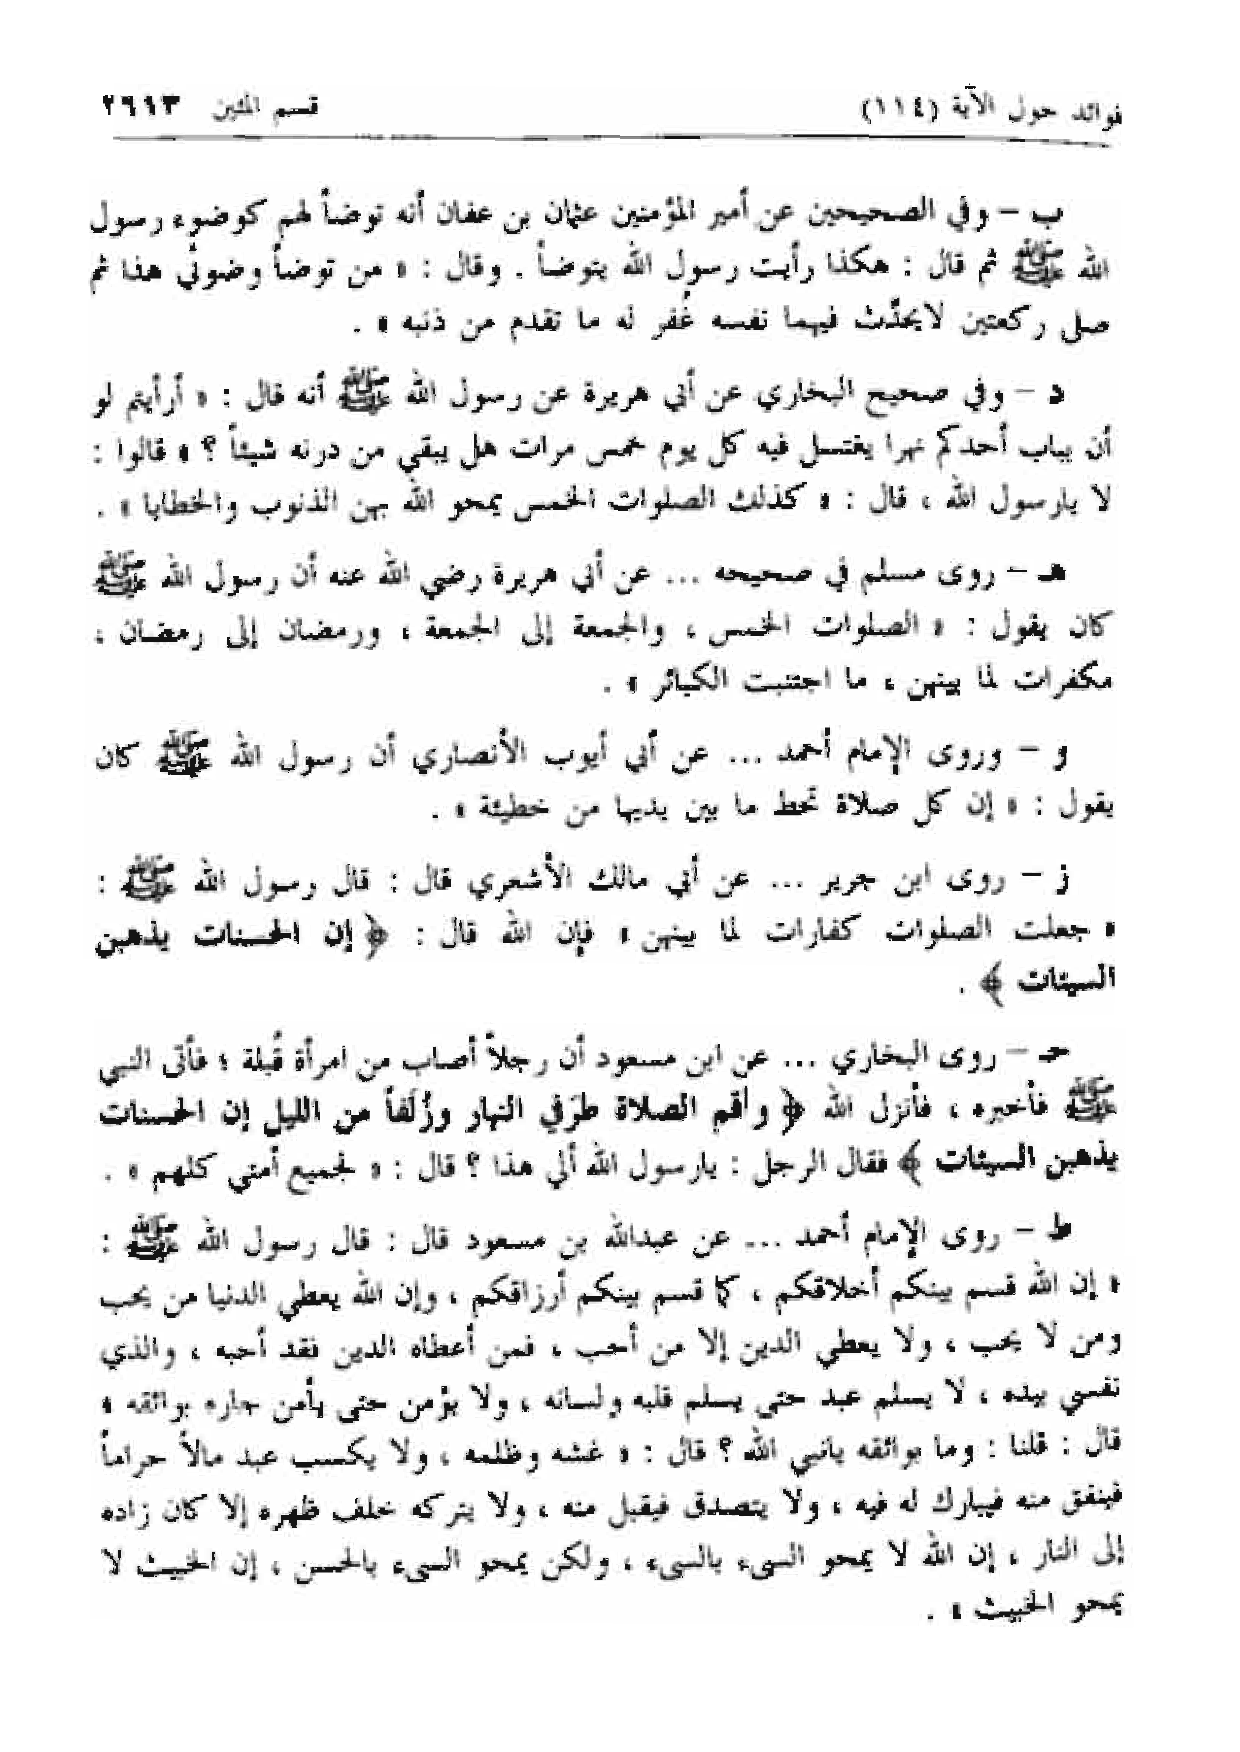 فوائد حول الآية (١١٤) قسم المئين ٢٦١٣
ب – وفي الصحيحين عن أمير المؤمنين عثمان بن عفان أنه توضأ لهم كوضوء رسول
الله ﷺ ثم قال : هكذا رأيت رسول الله يتوضأ . وقال : « من توضأ وضوئي هذا ثم
صلى ركعتين لايحدِّث فيهما نفسه غُفر له ما تقدم من ذنبه » .
د – وفي صحيح البخاري عن أبي هريرة عن رسول الله ﷺ أنه قال : « أرأيتم لو
أن بباب أحدكم نهرا يغتسل فيه كل يوم خمس مرات هل يبقي من درنه شيئاً ؟ » قالوا :
لا يارسول الله ، قال : « كذلك الصلوات الخمس يمحو الله بهن الذنوب والخطايا » .
هـ – روى مسلم في صحيحه ... عن أبي هريرة رضي الله عنه أن رسول الله ﷺ
كان يقول : « الصلوات الخمس ، والجمعة إلى الجمعة ، ورمضان إلى رمضان ،
مكفرات لما بينهن ، ما اجتنبت الكبائر » .
و – وروى الإمام أحمد ... عن أبي أيوب الأنصاري أن رسول الله ﷺ كان
يقول : « إن كل صلاة تحط ما بين يديها من خطيئة » .
ز – روى ابن جرير ... عن أبي مالك الأشعري قال : قال رسول الله ﷺ :
« جعلت الصلوات كفارات لما بينهن » فإن الله قال : ﴿ إن الحسنات يذهبن
السيئات ﴾ .
حـ – روى البخاري ... عن ابن مسعود أن رجلاً أصاب من امرأة قُبلة ؛ فأتى النبي
ﷺ فأخبره ، فأنزل الله ﴿ وأقم الصلاة طرَفي النهار وزُلَفاً من الليل إن الحسنات
يذهبن السيئات ﴾ فقال الرجل : يارسول الله ألي هذا ؟ قال : « لجميع أمتي كلهم » .
ط – روى الإمام أحمد ... عن عبدالله بن مسعود قال : قال رسول الله ﷺ :
« إن الله قسم بينكم أخلاقكم ، كما قسم بينكم أرزاقكم ، وإن الله يعطي الدنيا من يحب
ومن لا يحب ، ولا يعطي الدين إلا من أحب ، فمن أعطاه الدين فقد أحبه ، والذي
نفسي بيده ، لا يسلم عبد حتى يسلم قلبه ولسانه ، ولا يؤمن حتى يأمن جاره بوائقه »
قال : قلنا : وما بوائقه يانبي الله ؟ قال : « غشه وظلمه ، ولا يكسب عبد مالاً حراماً
فينفق منه فيبارك له فيه ، ولا يتصدق فيقبل منه ، ولا يتركه خلف ظهره إلا كان زاده
إلى النار ، إن الله لا يمحو السيء بالسيء ، ولكن يمحو السيء بالحسن ، إن الخبيث لا
يمحو الخبيث » .